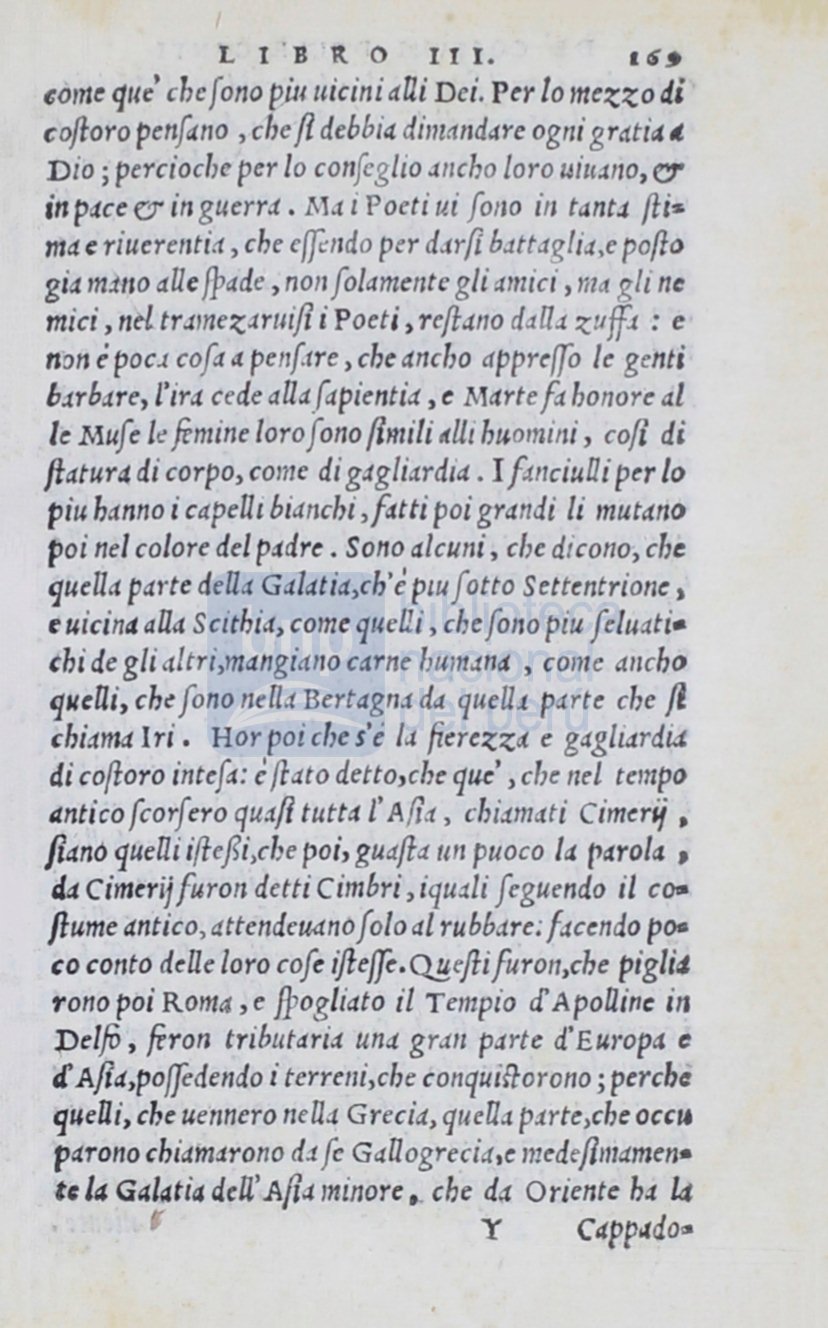 LIBRO III. 169
come que' che ſono piu uicini alli Dei. Per lo mezzo di
coſtoro penſano , che ſi debbia dimandare ogni gratia a
Dio ; percioche per lo conſeglio ancho loro uiuano, &
in pace & in guerra . Ma i Poeti ui ſono in tanta ſti-
ma e riuerentia , che eſſendo per darſi battaglia, e poſto
gia mano alle ſpade , non ſolamente gli amici , ma gli ne
mici , nel tramezaruiſi i Poeti , reſtano dalla zuffa : e
non è poca coſa a penſare , che ancho appreſſo le genti
barbare, l'ira cede alla ſapientia , e Marte fa honore al
le Muſe le femine loro ſono ſimili alli huomini , coſi di
ſtatura di corpo, come di gagliardia . I fanciulli per lo
piu hanno i capelli bianchi , fatti poi grandi li mutano
poi nel colore del padre . Sono alcuni , che dicono, che
quella parte della Galatia, ch'è piu ſotto Settentrione ,
e uicina alla Scithia, come quelli , che ſono piu ſeluati-
chi de gli altri, mangiano carne humana , come ancho
quelli, che ſono nella Bertagna da quella parte che ſi
chiama Iri . Hor poi che s'è la fierezza e gagliardia
di coſtoro inteſa: è ſtato detto, che que' , che nel tempo
antico ſcorſero quaſi tutta l'Aſia , chiamati Cimerij ,
ſiano quelli iſteßi, che poi, guaſta un puoco la parola ,
da Cimerij furon detti Cimbri , iquali ſeguendo il co-
ſtume antico, attendeuano ſolo al rubbare: facendo po-
co conto delle loro coſe iſteſſe. Queſti furon, che piglia
rono poi Roma , e ſpogliato il Tempio d'Apolline in
Delfo , feron tributaria una gran parte d'Europa e
d'Aſia, poſſedendo i terreni, che conquiſtorono ; perche
quelli, che uennero nella Grecia, quella parte, che occu
parono chiamarono da ſe Gallogrecia, e medeſimamen-
te la Galatia dell'Aſia minore , che da Oriente ha la
Y Cappado-
biblioteca
nacional
del perú